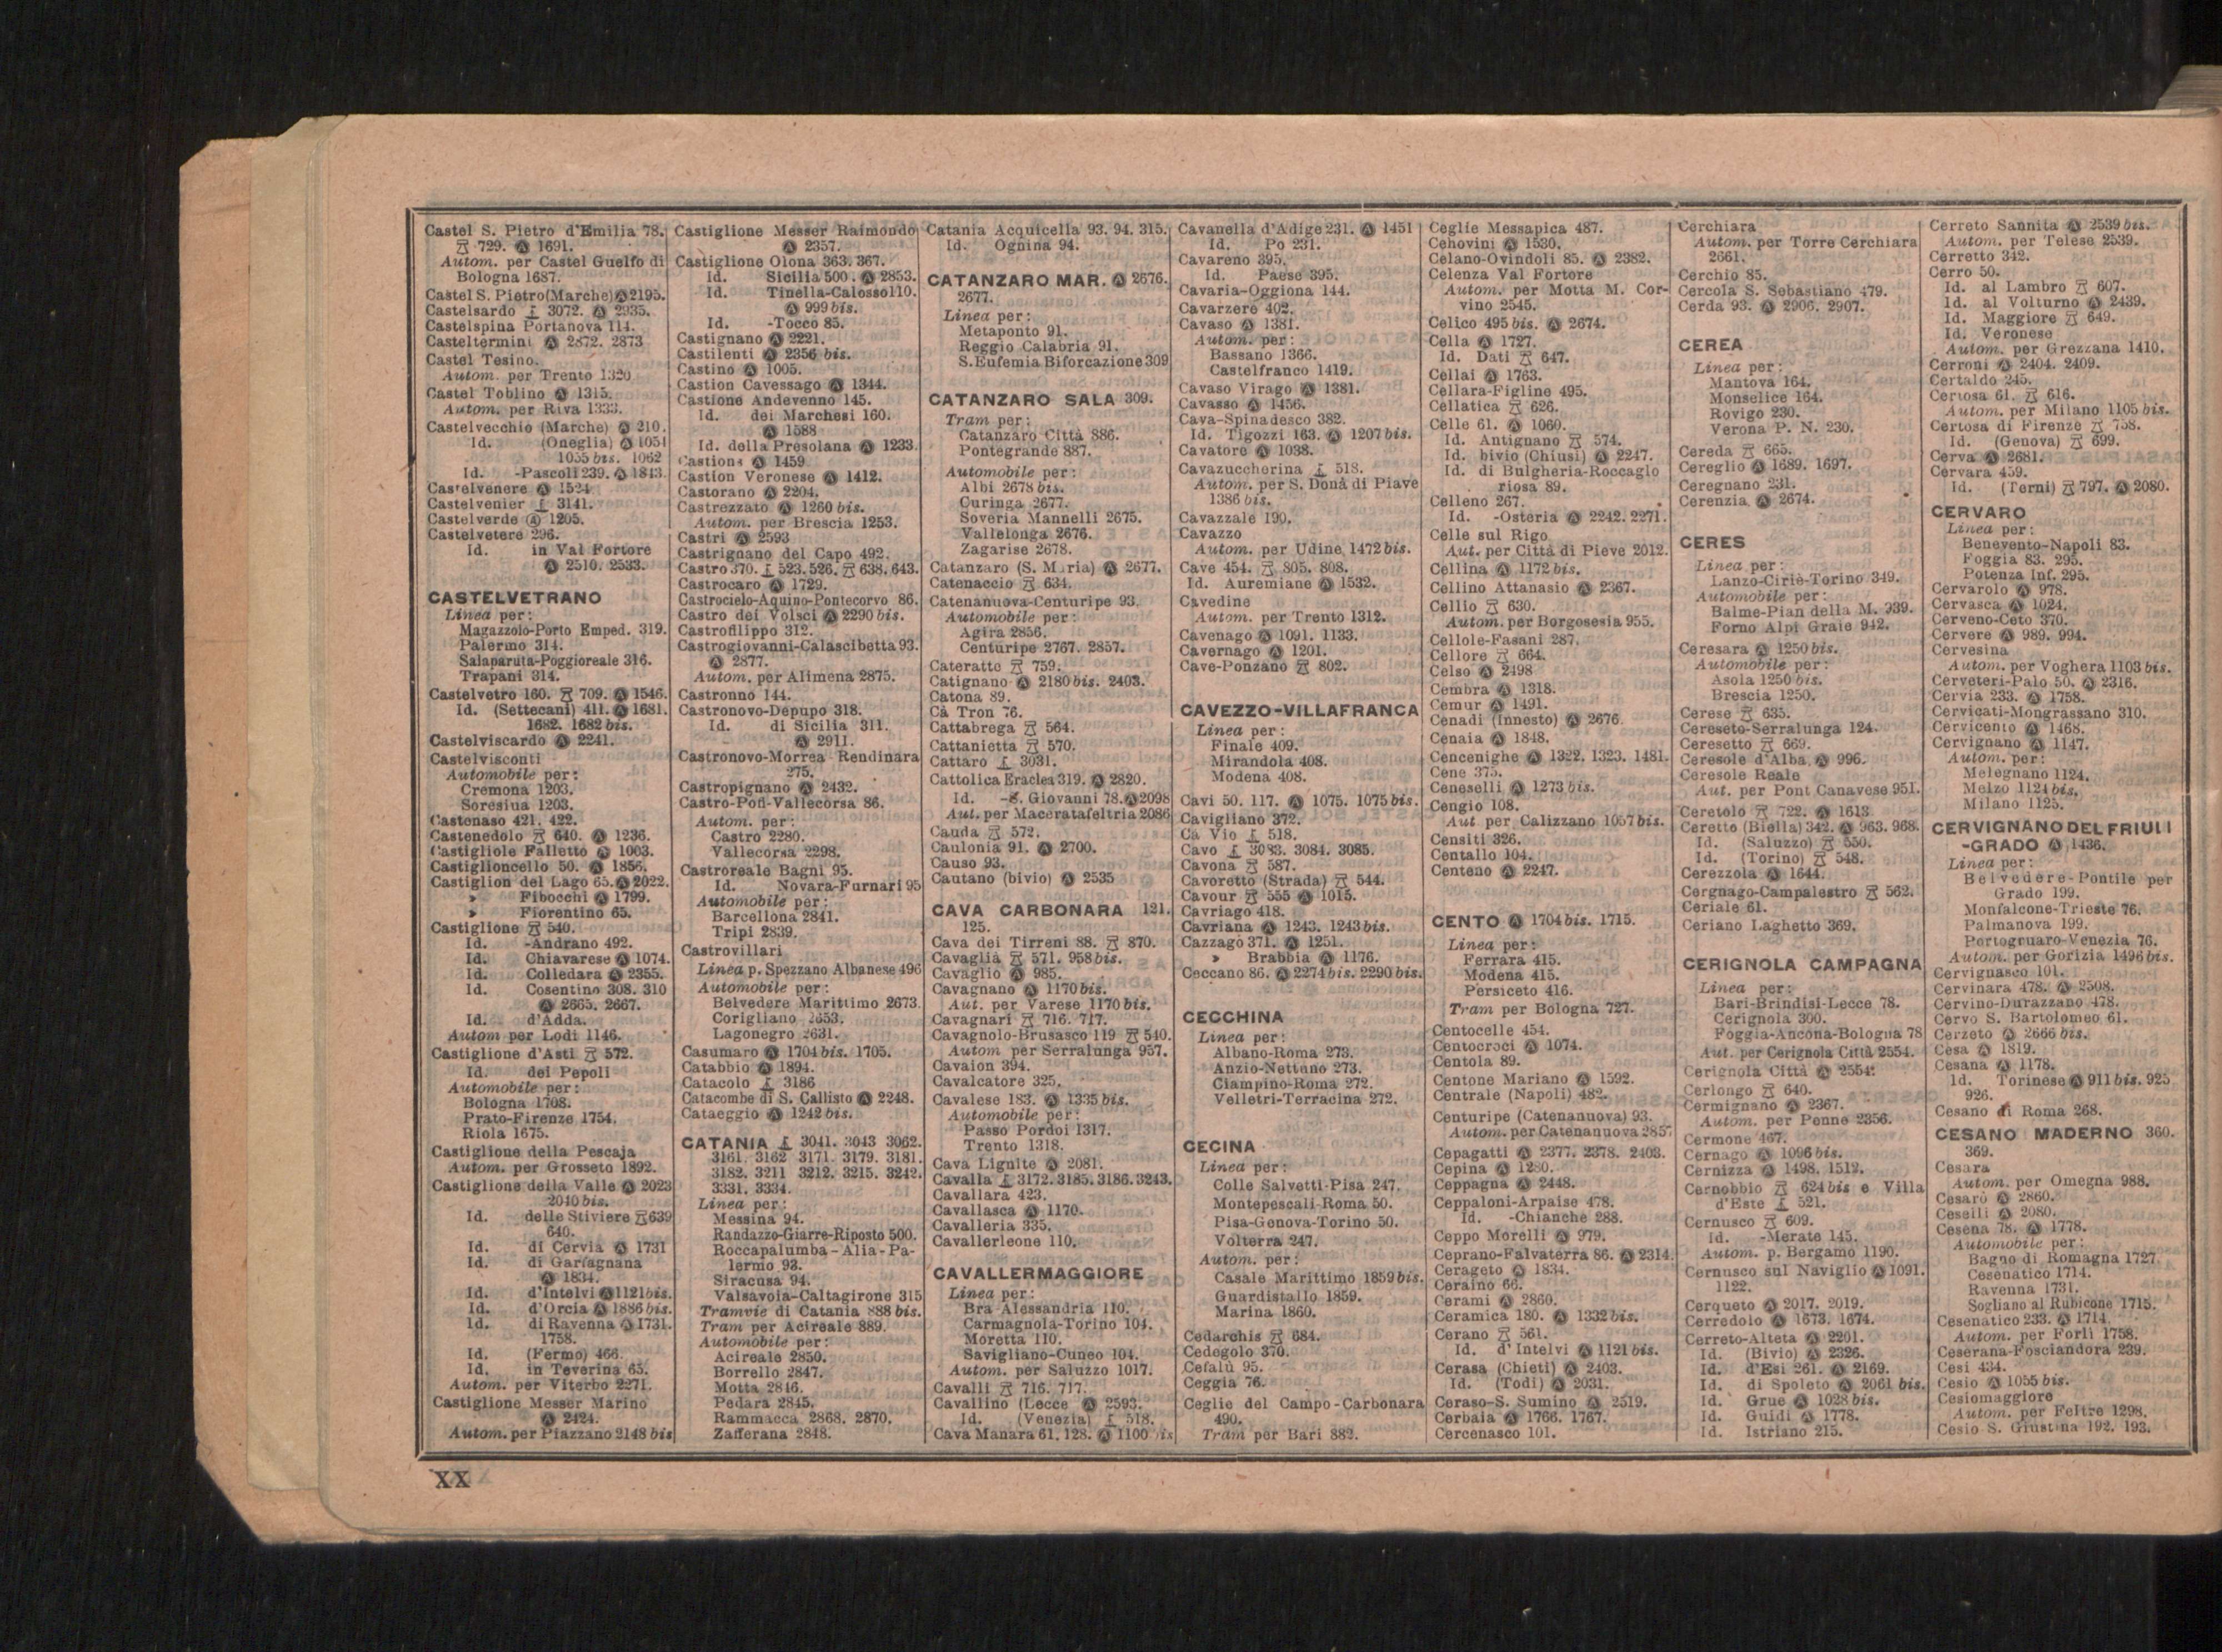 Castel S. Pietro d'Emilia 78.
729. Ⓐ 1691.
Autom. per Castel Guelfo di
Bologna 1687.
Castel S. Pietro(Marche) Ⓐ 2195.
Castelsardo 3072. Ⓐ 2935.
Castelspina Portanova 114.
Casteltermini Ⓐ 2872. 2873
Castel Tesino.
Autom. per Trento 1320
Castel Toblino Ⓐ 1315.
Autom. per Riva 1333.
Castelvecchio (Marche) Ⓐ 210.
Id. (Oneglia) Ⓐ 1051
1055 bis. 1062
Id. -Pascoli 239. Ⓐ 1843.
Castelvenere Ⓐ 1524
Castelvenier 3141.
Castelverde Ⓐ 1205.
Castelvetere 296.
Id. in Val Fortore
Ⓐ 2510. 2533.
CASTELVETRANO
Linea per:
Magazzolo-Porto Emped. 319.
Palermo 314.
Salaparuta-Poggioreale 316.
Trapani 314.
Castelvetro 160. 709. Ⓐ 1546.
Id. (Settecani) 411. Ⓐ 1681.
1682. 1682 bis.
Castelviscardo Ⓐ 2241.
Castelvisconti
Automobile per:
Cremona 1203.
Soresina 1203.
Castenaso 421. 422.
Castenedolo 640. Ⓐ 1236.
Castigliole Falletto Ⓐ 1003.
Castiglioncello 50. Ⓐ 1856.
Castiglion del Lago 65. Ⓐ 2022.
» Fibocchi Ⓐ 1799.
» Fiorentino 65.
Castiglione 540.
Id. -Andrano 492.
Id. Chiavarese Ⓐ 1074.
Id. Colledara Ⓐ 2355.
Id. Cosentino 308. 310
Ⓐ 2665. 2667.
Id. d'Adda.
Autom per Lodi 1146.
Castiglione d'Asti 572.
Id. dei Pepoli
Automobile per:
Bologna 1708.
Prato-Firenze 1754.
Riola 1675.
Castiglione della Pescaja
Autom. per Grosseto 1892.
Castiglione della Valle Ⓐ 2023
2040 bis.
Id. delle Stiviere 639
640.
Id. di Cervia Ⓐ 1731
Id. di Garfagnana
Ⓐ 1834.
Id. d'Intelvi Ⓐ 1121 bis.
Id. d'Orcia Ⓐ 1886 bis.
Id. di Ravenna Ⓐ 1731.
1758.
Id. (Fermo) 466.
Id. in Teverina 65.
Autom. per Viterbo 2271.
Castiglione Messer Marino
Ⓐ 2424.
Autom. per Piazzano 2148 bis
Castiglione Messer Raimondo
Ⓐ 2357.
Castiglione Olona 363. 367.
Id. Sicilia 500. Ⓐ 2853.
Id. Tinella-Calosso 110.
Ⓐ 999 bis.
Id. -Tocco 85.
Castignano Ⓐ 2221.
Castilenti Ⓐ 2356 bis.
Castino Ⓐ 1005.
Castion Cavessago Ⓐ 1344.
Castione Andevenno 145.
Id. dei Marchesi 160.
Ⓐ 1588
Id. della Presolana Ⓐ 1233
Castions Ⓐ 1459
Castion Veronese Ⓐ 1412.
Castorano Ⓐ 2204.
Castrezzato Ⓐ 1260 bis.
Autom. per Brescia 1253.
Castri Ⓐ 2593
Castrignano del Capo 492.
Castro 370. 523. 526. 638. 643.
Castrocaro Ⓐ 1729.
Castrocielo-Aquino-Pontecorvo 86.
Castro dei Volsci Ⓐ 2290 bis.
Castrofilippo 312.
Castrogiovanni-Calascibetta 93.
Ⓐ 2877.
Autom. per Alimena 2875.
Castronno 144.
Castronovo-Depupo 318.
Id. di Sicilia 311.
Ⓐ 2911.
Castronovo-Morrea Rendinara
275.
Castropignano Ⓐ 2432.
Castro-Pofi-Vallecorsa 86.
Autom. per:
Castro 2280.
Vallecorsa 2298.
Castroreale Bagni 95.
Id. Novara-Furnari 95
Automobile per:
Barcellona 2841.
Tripi 2839.
Castrovillari
Linea p. Spezzano Albanese 496
Automobile per:
Belvedere Marittimo 2673.
Corigliano 2653.
Lagonegro 2631.
Casumaro Ⓐ 1704 bis. 1705.
Catabbio Ⓐ 1894.
Catacolo 3186
Catacombe di S. Callisto Ⓐ 2248.
Cataeggio Ⓐ 1242 bis.
CATANIA 3041. 3043 3062.
3161. 3162 3171. 3179. 3181.
3182. 3211 3212. 3215. 3242.
3331. 3334.
Linea per:
Messina 94.
Randazzo-Giarre-Riposto 500.
Roccapalumba-Alia-Pa-
lermo 93.
Siracusa 94.
Valsavoia-Caltagirone 315
Tramvie di Catania 888 bis.
Tram per Acireale 889.
Automobile per:
Acireale 2850.
Borrello 2847.
Motta 2846.
Pedara 2845.
Rammacca 2868. 2870.
Zafferana 2848.
Catania Acquicella 93. 94. 315.
Id. Ognina 94.
CATANZARO MAR. Ⓐ 2676.
2677.
Linea per:
Metaponto 91.
Reggio Calabria 91.
S. Eufemia Biforcazione 309
CATANZARO SALA 309.
Tram per:
Catanzaro Città 886.
Pontegrande 887.
Automobile per:
Albi 2678 bis.
Curinga 2677.
Soveria Mannelli 2675.
Vallelonga 2676.
Zagarise 2678.
Catanzaro (S. Maria) Ⓐ 2677.
Catenaccio 634.
Catenanuova-Centuripe 93.
Automobile per:
Agira 2856.
Centuripe 2767. 2857.
Cateratte 759.
Catignano Ⓐ 2180 bis. 2403.
Catona 89.
Cà Tron 76.
Cattabrega 564.
Cattanietta 570.
Cattaro 3031.
Cattolica Eraclea 319. Ⓐ 2820.
Id. -S. Giovanni 78. Ⓐ 2098
Aut. per Maceratafeltria 2086
Cauda 572.
Caulonia 91. Ⓐ 2700.
Causo 93.
Cautano (bivio) Ⓐ 2535
CAVA CARBONARA 121.
125.
Cava dei Tirreni 88. 870.
Cavaglià 571. 958 bis.
Cavaglio Ⓐ 985.
Cavagnano Ⓐ 1170 bis.
Aut. per Varese 1170 bis.
Cavagnari 716. 717.
Cavagnolo-Brusasco 119 540.
Autom per Serralunga 957.
Cavaion 394.
Cavalcatore 325.
Cavalese 183. Ⓐ 1335 bis.
Automobile per:
Passo Pordoi 1317.
Trento 1318.
Cava Lignite Ⓐ 2081.
Cavalla 3172. 3185. 3186. 3243.
Cavallara 423.
Cavallasca Ⓐ 1170.
Cavalleria 335.
Cavallerleone 110.
CAVALLERMAGGIORE
Linea per:
Bra Alessandria 110.
Carmagnola-Torino 104.
Moretta 110.
Savigliano-Cuneo 104.
Autom. per Saluzzo 1017.
Cavalli 716. 717.
Cavallino (Lecce Ⓐ 2593.
Id. (Venezia) 518.
Cava Manara 61. 128. Ⓐ 1100 bis
Cavanella d'Adige 231. Ⓐ 1451
Id. Po 231.
Cavareno 395.
Id. Paese 395.
Cavaria-Oggiona 144.
Cavarzere 402.
Cavaso Ⓐ 1381.
Autom. per:
Bassano 1366.
Castelfranco 1419.
Cavaso Virago Ⓐ 1381.
Cavasso Ⓐ 1456.
Cava-Spinadesco 382.
Id. Tigozzi 163. Ⓐ 1207 bis.
Cavatore Ⓐ 1038.
Cavazuccherina 518.
Autom. per S. Donà di Piave
1386 bis.
Cavazzale 190.
Cavazzo
Autom. per Udine 1472 bis.
Cave 454. 805. 808.
Id. Auremiane Ⓐ 1532.
Cavedine
Autom. per Trento 1312.
Cavenago Ⓐ 1091. 1133.
Cavernago Ⓐ 1201.
Cave-Ponzano 802.
CAVEZZO-VILLAFRANCA
Linea per:
Finale 409.
Mirandola 408.
Modena 408.
Cavi 50. 117. Ⓐ 1075. 1075 bis.
Cavigliano 372.
Cà Vio 518.
Cavo 3083. 3084. 3085.
Cavona 587.
Cavoretto (Strada) 544.
Cavour 555 Ⓐ 1015.
Cavriago 418.
Cavriana Ⓐ 1243. 1243 bis.
Cazzago 371. Ⓐ 1251.
» Brabbia Ⓐ 1176.
Ceccano 86. Ⓐ 2274 bis. 2290 bis.
CECCHINA
Linea per:
Albano-Roma 273.
Anzio-Nettuno 273.
Ciampino-Roma 272.
Velletri-Terracina 272.
CECINA
Linea per:
Colle Salvetti-Pisa 247.
Montepescali-Roma 50.
Pisa-Genova-Torino 50.
Volterra 247.
Autom. per:
Casale Marittimo 1859 bis.
Guardistallo 1859.
Marina 1860.
Cedarchis 684.
Cedegolo 370.
Cefalù 95.
Ceggia 76.
Ceglie del Campo-Carbonara
490.
Tram per Bari 882.
Ceglie Messapica 487.
Cehovini Ⓐ 1530.
Celano-Ovindoli 85. Ⓐ 2382.
Celenza Val Fortore
Autom. per Motta M. Cor-
vino 2545.
Celico 495 bis. Ⓐ 2674.
Cella Ⓐ 1727.
Id. Dati 647.
Cellai Ⓐ 1763.
Cellara-Figline 495.
Cellatica 626.
Celle 61. Ⓐ 1060.
Id. Antignano 574.
Id. bivio (Chiusi) Ⓐ 2247.
Id. di Bulgheria-Roccaglo
riosa 89.
Celleno 267.
Id. -Osteria Ⓐ 2242. 2271.
Celle sul Rigo
Aut. per Città di Pieve 2012.
Cellina Ⓐ 1172 bis.
Cellino Attanasio Ⓐ 2367.
Cellio 630.
Autom. per Borgosesia 955.
Cellole-Fasani 287.
Cellore 664.
Celso Ⓐ 2498
Cembra Ⓐ 1318.
Cemur Ⓐ 1491.
Cenadi (Innesto) Ⓐ 2676
Cenaia Ⓐ 1848.
Cencenighe Ⓐ 1322. 1323. 1481.
Cene 375.
Ceneselli Ⓐ 1273 bis.
Cengio 108.
Aut per Calizzano 1057 bis.
Censiti 326.
Centallo 104.
Centeno Ⓐ 2247.
CENTO Ⓐ 1704 bis. 1715.
Linea per:
Ferrara 415.
Modena 415.
Persiceto 416.
Tram per Bologna 727.
Centocelle 454.
Centocroci Ⓐ 1074.
Centola 89.
Centone Mariano Ⓐ 1592.
Centrale (Napoli) 482.
Centuripe (Catenanuova) 93.
Autom. per Catenanuova 2857
Cepagatti Ⓐ 2377. 2378. 2403.
Cepina Ⓐ 1280.
Ceppagna Ⓐ 2448.
Ceppaloni-Arpaise 478.
Id. -Chianche 288.
Ceppo Morelli Ⓐ 979.
Ceprano-Falvaterra 86. Ⓐ 2314.
Cerageto Ⓐ 1834.
Ceraino 66.
Cerami Ⓐ 2860.
Ceramica 180. Ⓐ 1332 bis.
Cerano 561.
Id. d'Intelvi Ⓐ 1121 bis.
Cerasa (Chieti) Ⓐ 2403.
Id. (Todi) Ⓐ 2031.
Ceraso-S. Sumino Ⓐ 2519.
Cerbaia Ⓐ 1766. 1767.
Cercenasco 101.
Cerchiara
Autom. per Torre Cerchiara
2661.
Cerchio 85.
Cercola S. Sebastiano 479.
Cerda 93. Ⓐ 2906. 2907.
CEREA
Linea per:
Mantova 164.
Monselice 164.
Rovigo 230.
Verona P. N. 230.
Cereda 665.
Cereglio Ⓐ 1689. 1697.
Ceregnano 231.
Cerenzia Ⓐ 2674.
CERES
Linea per:
Lanzo-Ciriè-Torino 349.
Automobile per:
Balme-Pian della M. 939.
Forno Alpi Graie 942.
Ceresara Ⓐ 1250 bis.
Automobile per:
Asola 1250 bis.
Brescia 1250.
Cerese 635.
Cereseto-Serralunga 124.
Ceresetto 669.
Ceresole d'Alba Ⓐ 996.
Ceresole Reale
Aut. per Pont Canavese 951.
Ceretolo 722. Ⓐ 1613
Ceretto (Biella) 342. Ⓐ 963. 968.
Id. (Saluzzo) 550.
Id. (Torino) 548.
Cerezzola Ⓐ 1644.
Cergnago-Campalestro 562.
Ceriale 61.
Ceriano Laghetto 369.
CERIGNOLA CAMPAGNA
Linea per:
Bari-Brindisi-Lecce 78.
Cerignola 300.
Foggia-Ancona-Bologna 78
Aut. per Cerignola Città 2554.
Cerignola Città Ⓐ 2554.
Cerlongo 640.
Cermignano Ⓐ 2367.
Autom. per Penne 2356.
Cermone 467.
Cernago Ⓐ 1096 bis.
Cernizza Ⓐ 1498. 1512.
Cernobbio 624 bis e Villa
d'Este 521.
Cernusco 609.
Id. -Merate 145.
Autom. p. Bergamo 1190.
Cernusco sul Naviglio Ⓐ 1091.
1122.
Cerqueto Ⓐ 2017. 2019.
Cerredolo Ⓐ 1673. 1674.
Cerreto-Alteta Ⓐ 2201.
Id. (Bivio) Ⓐ 2326.
Id. d'Esi 261. Ⓐ 2169.
Id. di Spoleto Ⓐ 2061 bis.
Id. Grue Ⓐ 1028 bis.
Id. Guidi Ⓐ 1778.
Id. Istriano 215.
Cerreto Sannita Ⓐ 2539 bis.
Autom. per Telese 2539.
Cerretto 342.
Cerro 50.
Id. al Lambro 607.
Id. al Volturno Ⓐ 2439.
Id. Maggiore 649.
Id. Veronese
Autom. per Grezzana 1410.
Cerroni Ⓐ 2404. 2409.
Certaldo 245.
Certosa 61. 616.
Autom. per Milano 1105 bis.
Certosa di Firenze 758.
Id. (Genova) 699.
Cerva Ⓐ 2681.
Cervara 459.
Id. (Terni) 797. Ⓐ 2080.
CERVARO
Linea per:
Benevento-Napoli 83.
Foggia 83. 295.
Potenza Inf. 295.
Cervarolo Ⓐ 978.
Cervasca Ⓐ 1024.
Cerveno-Ceto 370.
Cervere Ⓐ 989. 994.
Cervesina
Autom. per Voghera 1103 bis.
Cerveteri-Palo 50. Ⓐ 2316.
Cervia 233. Ⓐ 1758.
Cervicati-Mongrassano 310.
Cervicento Ⓐ 1468.
Cervignano Ⓐ 1147.
Autom. per:
Melegnano 1124.
Melzo 1124 bis.
Milano 1125.
CERVIGNANO DEL FRIULI
-GRADO Ⓐ 1436.
Linea per:
Belvedere-Pontile per
Grado 199.
Monfalcone-Trieste 76.
Palmanova 199.
Portogruaro-Venezia 76.
Autom. per Gorizia 1496 bis.
Cervignasco 101.
Cervinara 478. Ⓐ 2508.
Cervino-Durazzano 478.
Cervo S. Bartolomeo 61.
Cerzeto Ⓐ 2666 bis.
Cesa Ⓐ 1819.
Cesana Ⓐ 1178.
Id. Torinese Ⓐ 911 bis. 925
926.
Cesano di Roma 268.
CESANO MADERNO 360.
369.
Cesara
Autom. per Omegna 988.
Cesarò Ⓐ 2860.
Ceselli Ⓐ 2080.
Cesena 78. Ⓐ 1778.
Automobile per:
Bagno di Romagna 1727
Cesenatico 1714.
Ravenna 1731.
Sogliano al Rubicone 1715.
Cesenatico 233. Ⓐ 1714.
Autom. per Forlì 1758.
Ceserana-Fosciandora 239.
Cesi 434.
Cesio Ⓐ 1055 bis.
Cesiomaggiore
Autom. per Feltre 1298.
Cesio S. Giustina 192. 193.
XX